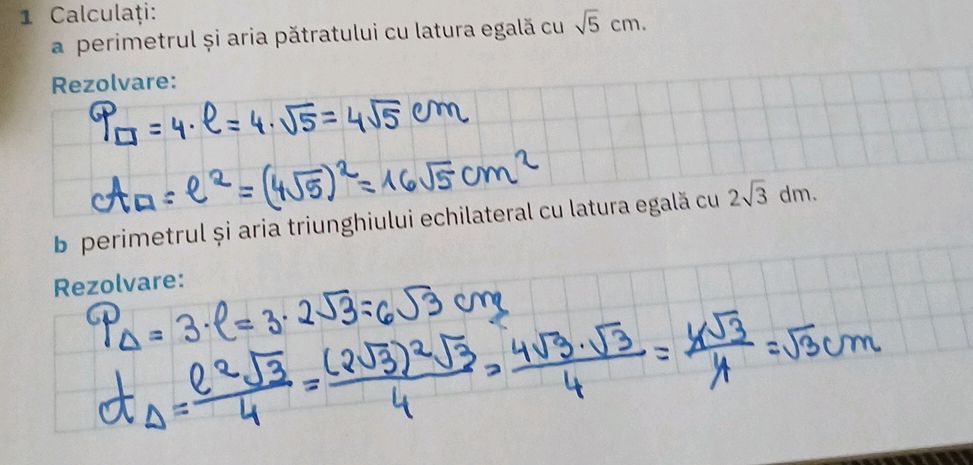 1 Calculați:
a perimetrul și aria pătratului cu latura egală cu √5 cm.
Rezolvare:
P□ = 4·l = 4·√5 = 4√5 cm
A□ = l² = (4√5)² = 16√5 cm²
b perimetrul și aria triunghiului echilateral cu latura egală cu 2√3 dm.
Rezolvare:
P△ = 3·l = 3·2√3 = 6√3 cm
A△ = l²√3/4 = (2√3)²√3/4 = 4√3·√3/4 = 4√3/4 = √3 cm